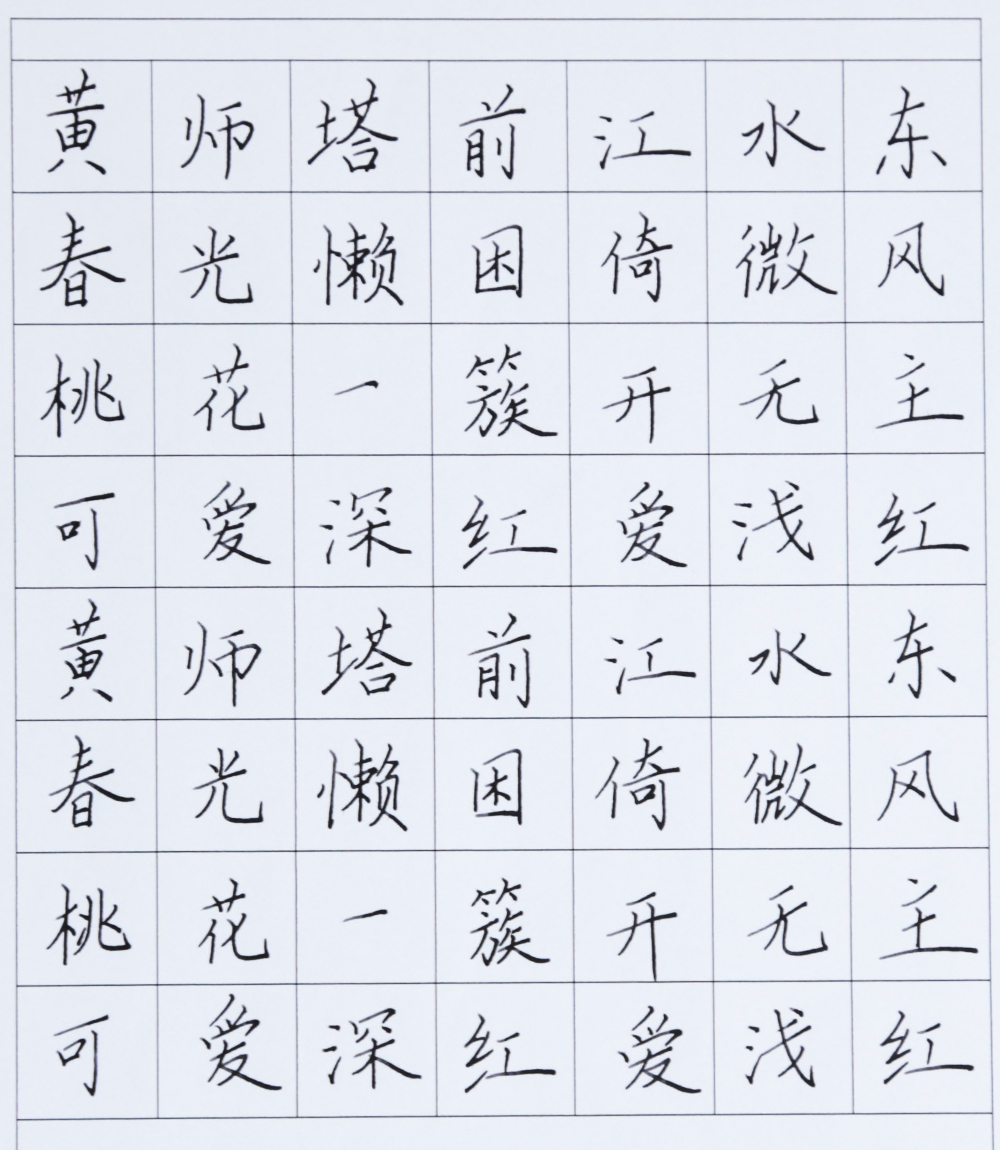 黄师塔前江水东
春光懒困倚微风
桃花一簇开无主
可爱深红爱浅红
黄师塔前江水东
春光懒困倚微风
桃花一簇开无主
可爱深红爱浅红